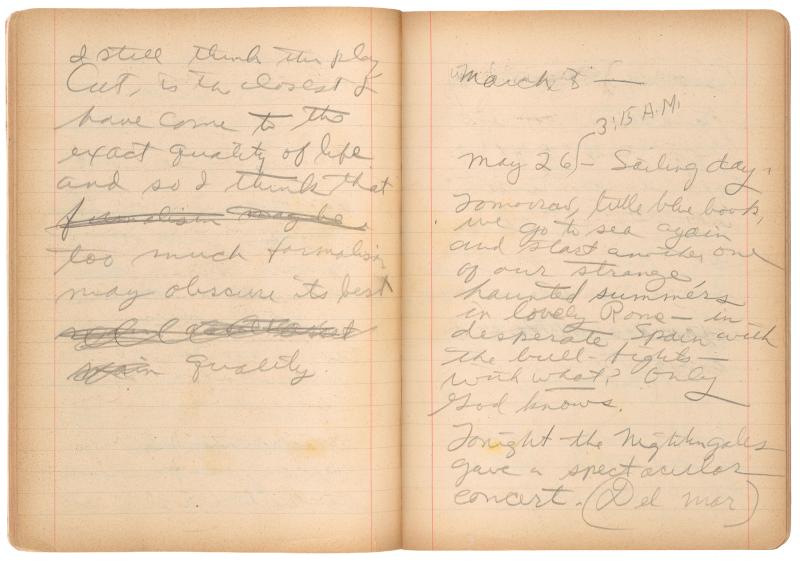 I still think the play
Cut, is the closest I
have come to the
exact quality of life
and so I think that
formalism may be
too much formalism
may obscure its best
quality.
March 3 —
3:15 A.M.
May 26 — Sailing day.
Tomorrow, little blue book,
we go to sea again
and start another one
of our strange,
haunted summers
in lovely Rome — in
desperate Spain with
the bull-fights —
with what? Only
God knows.
Tonight the Nightingales
gave a spectacular
concert. (Del mar)